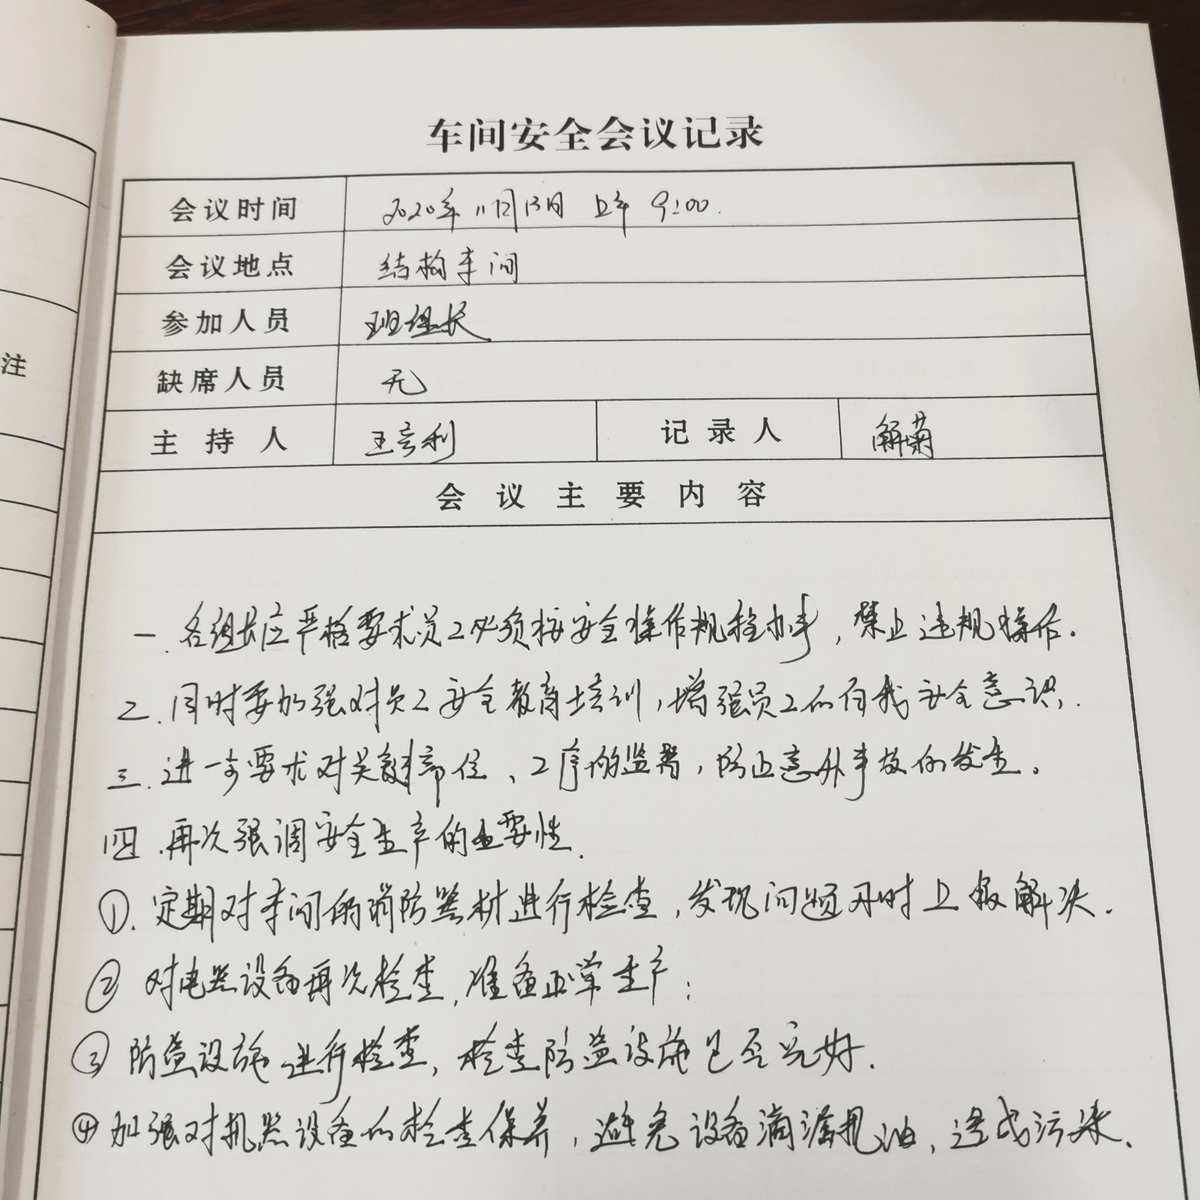 车间安全会议记录
会议时间 2020年11月13日 上午 9:00.
会议地点 结构车间
参加人员 班组长
缺席人员 无
主持人 王 利 记录人 解菊
会议主要内容
注
一.各组长应严格要求员工必须按安全操作规程办事,禁止违规操作.
二.同时要加强对员工安全教育培训,增强员工的自我安全意识.
三.进一步要求对关键部位、工序的监督,防止意外事故的发生。
四.再次强调安全生产的重要性.
①.定期对车间的消防器材进行检查,发现问题及时上报解决.
② 对电器设备再次检查,准备正常生产;
③ 防盗设施进行检查,检查防盗设施是否完好.
④ 加强对机器设备的检查保养,避免设备滴漏 油,造成污染.